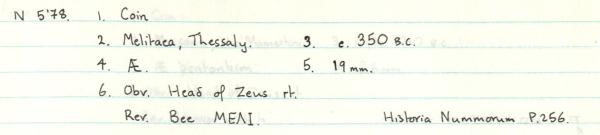 N 5'78. 1. Coin
2. Melitaea, Thessaly. 3. c. 350 B.C.
4. Æ. 5. 19 mm.
6. Obv. Head of Zeus rt.
Rev. Bee ΜΕΛΙ. Historia Nummorum P.256.